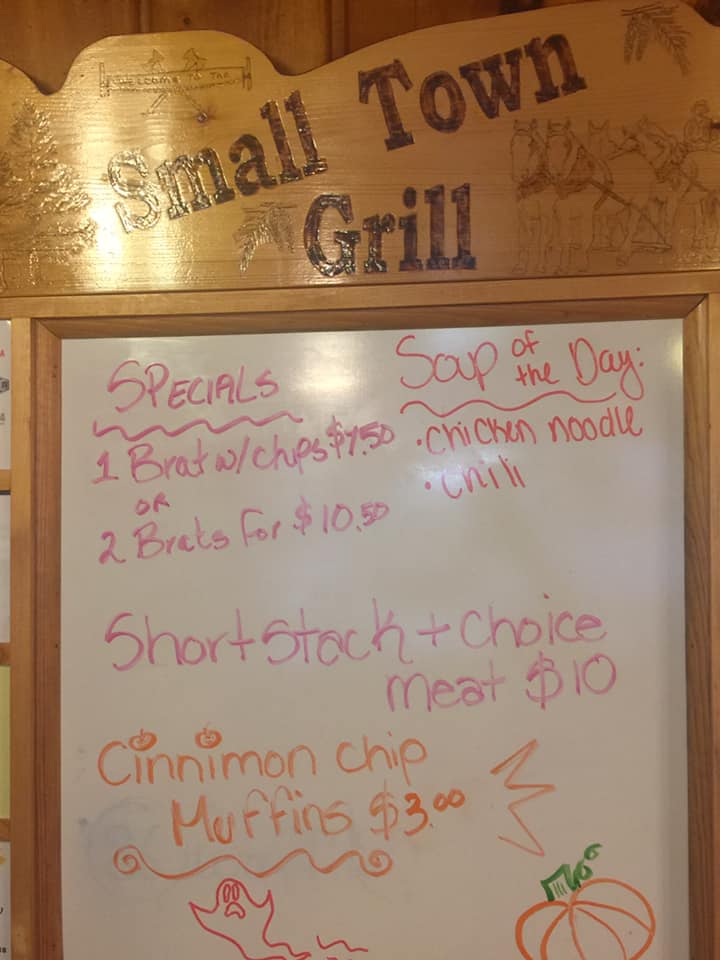 WELCOME TO THE
Small Town
Grill
SPECIALS
1 Brat w/chips $7.50
OR
2 Brats for $10.50
Soup of the Day:
• chicken noodle
• chili
Short Stack + choice
meat $10
Cinnimon chip
Muffins $3.00